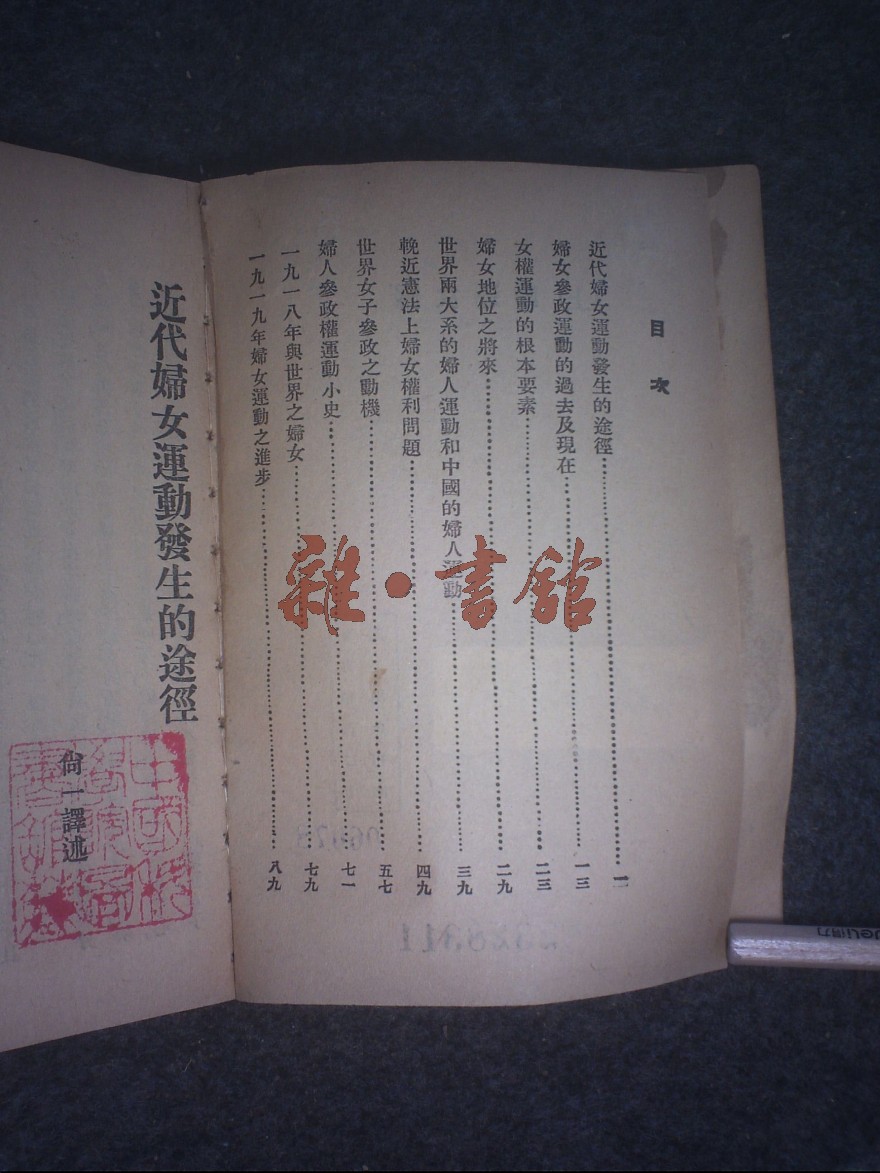 目次
近代婦女運動發生的途徑 一
婦女參政運動的過去及現在 一三
女權運動的根本要素 二三
婦女地位之將來 二九
世界兩大系的婦人運動和中國的婦人運動 三九
輓近憲法上婦女權利問題 四九
世界女子參政之動機 五七
婦人參政權運動小史 七一
一九一八年與世界之婦女 七九
一九一九年婦女運動之進步 八九
近代婦女運動發生的途徑
尙一譯述
雜·書館